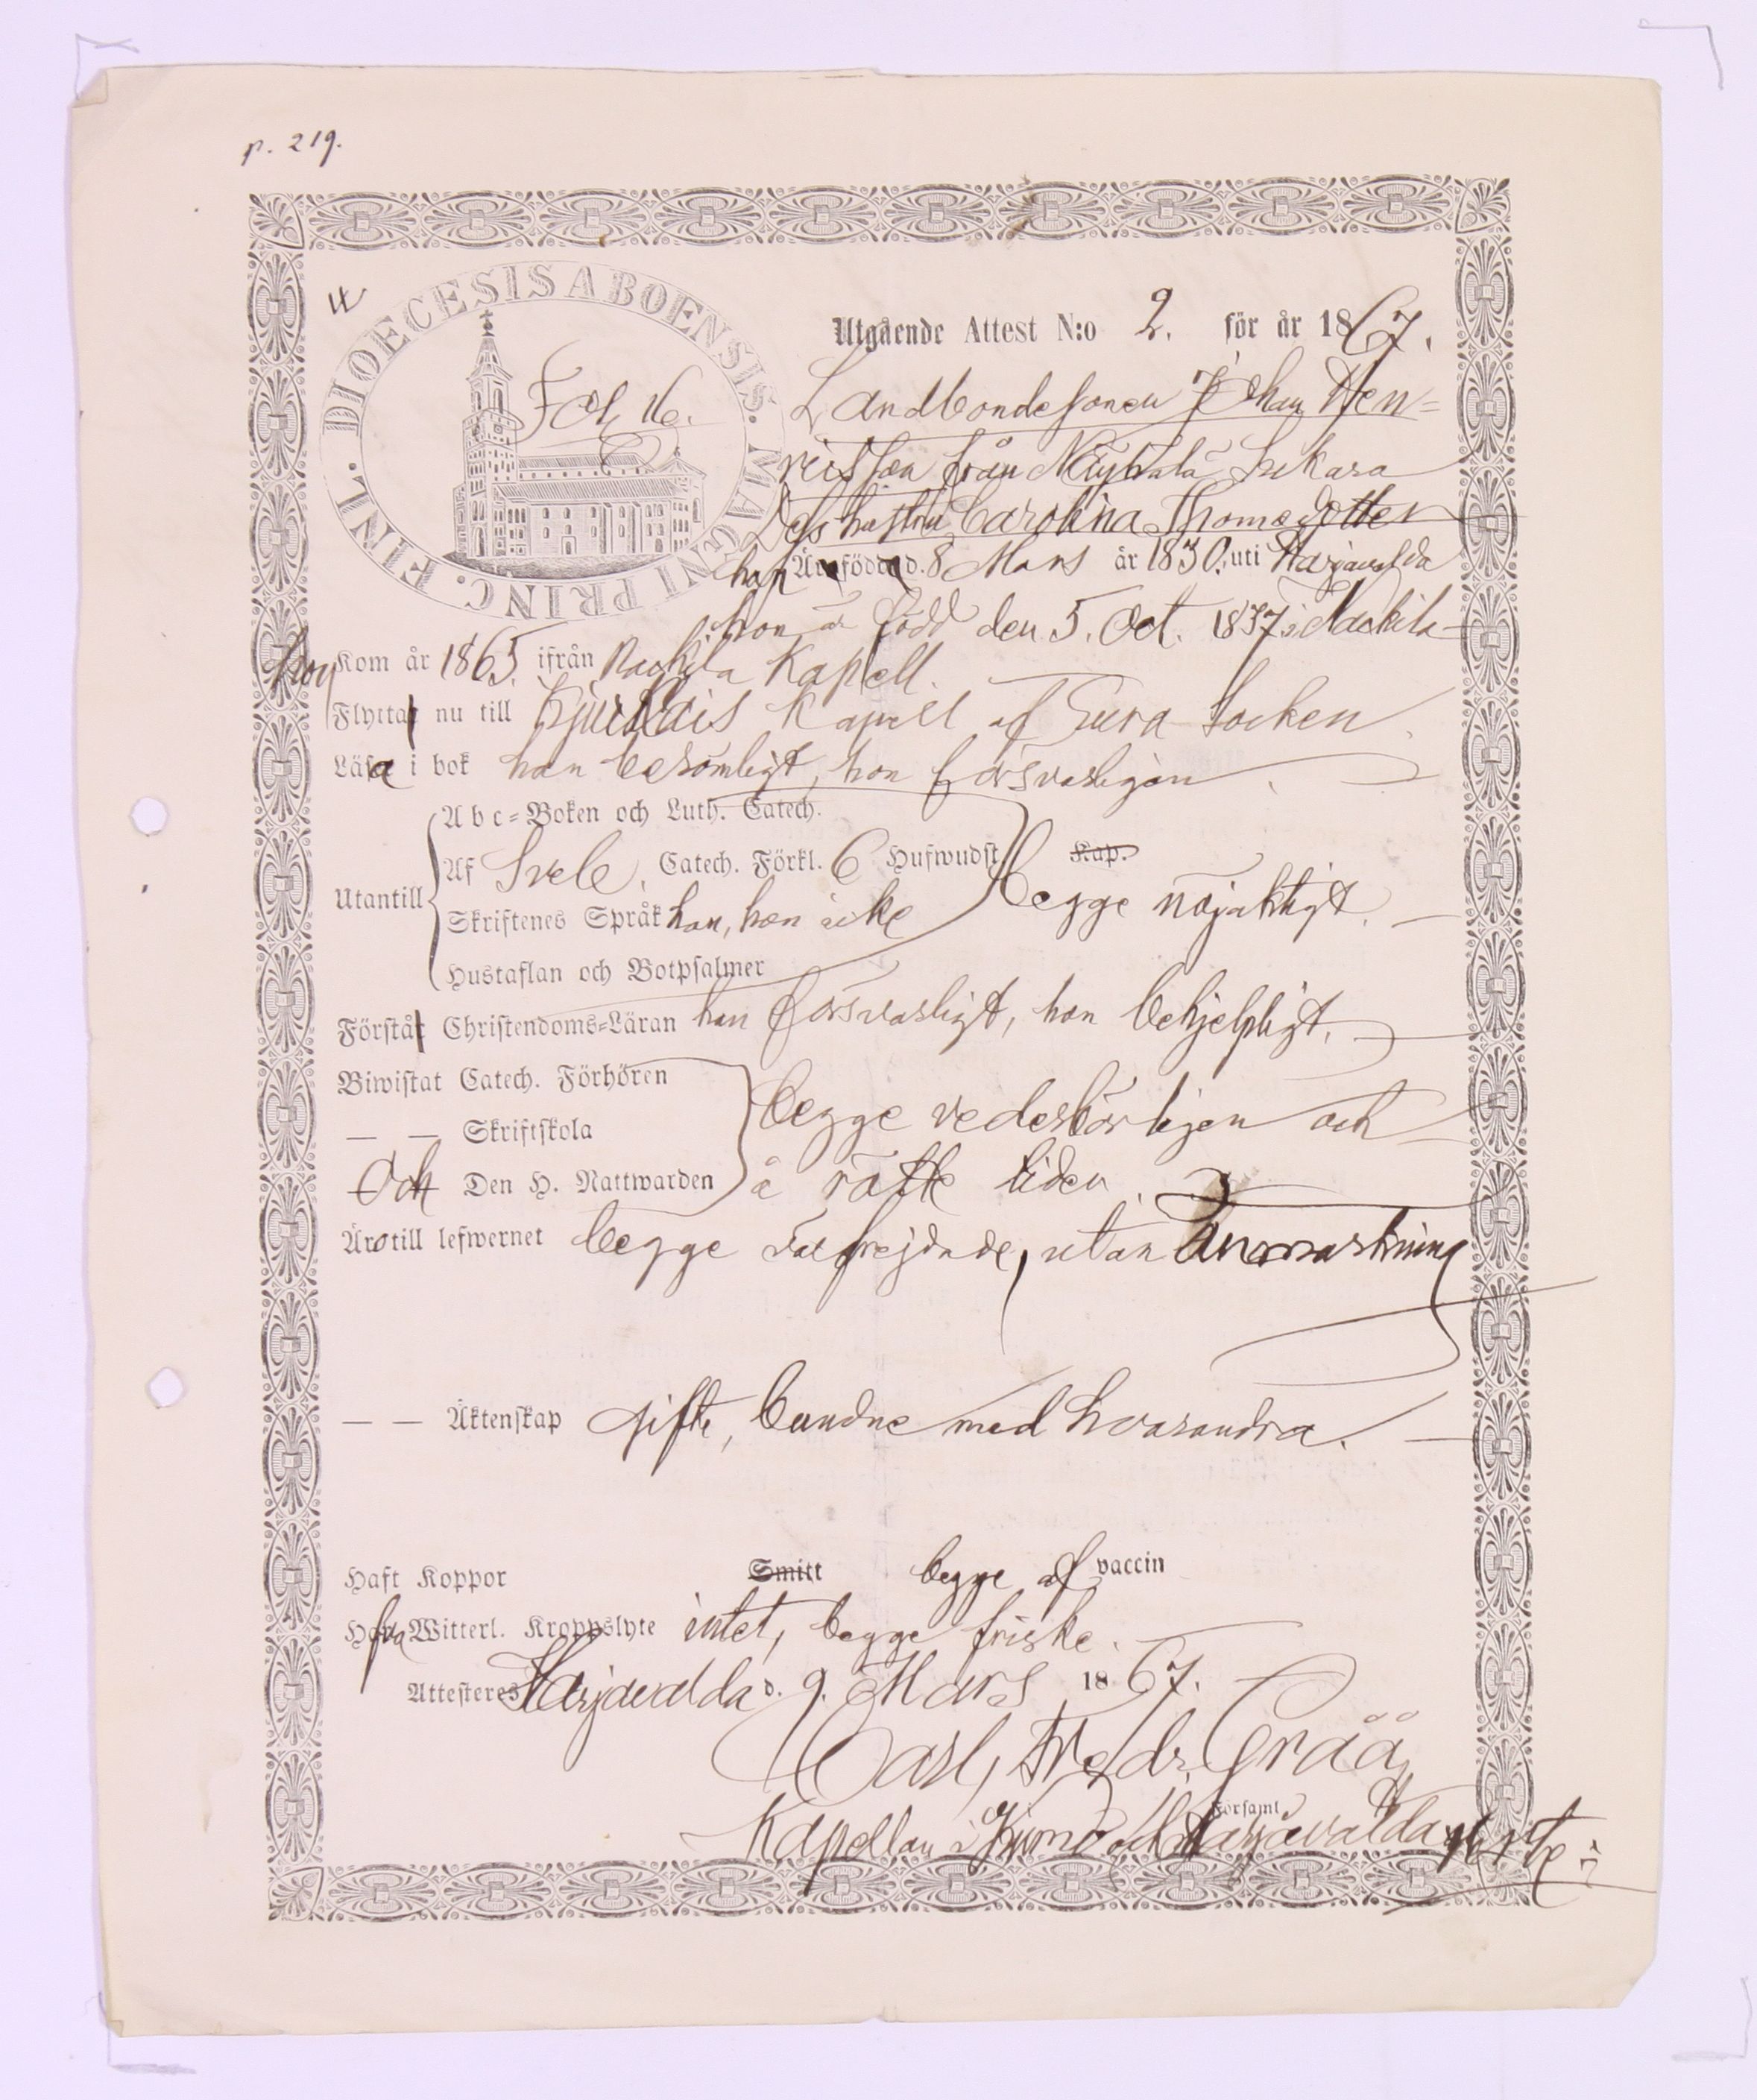 p. 219.
DIOECESIS ABOENSIS. MAGNI PRINC. FINL.
Fol. 16.
Utgående Attest N:o 2. för år 1867.
Landbondesonen Johan Hen=
ricsson från
Dess hustru Carolina Thomasdotter
han Är född d. 8 Mars år 1830. uti Harjavalda
hon är född den 5. Oct. 1837 i Nackila
hon Kom år 1865. ifrån Nackila Kapell.
Flytta nu till Kjulais Kapell af Eura Socken.
Läsa i bok han berömligt, hon försvarligen
Utantill
A b c=Boken och Luth. Catech.
Af Sveb. Catech. Förkl. 6 Hufwudst. Kap.
begge nöjaktigt.
Skriftenes Språk han, hon icke
Hustaflan och Botpsalmer
Förstå Christendoms=Läran han försvarligt, hon behjelpligt.
Biwistat Catech. Förhören
— — Skriftskola begge vederbörligen och
Och Den H. Nattwarden å rätte tider.
Äro till lefwernet begge välfrejdade, utan Anmärkning
— — Äktenskap gifte, bundne med hvarandra.
Haft Koppor Smitt begge af vaccin
Hafva Witterl. Kroppslyte intet, begge friske.
Attesteres Harjavalda d. 9. Mars 1867.
Carl Fredr. Gråå
Kapellan i Kjumo och Harjavalda Församl.